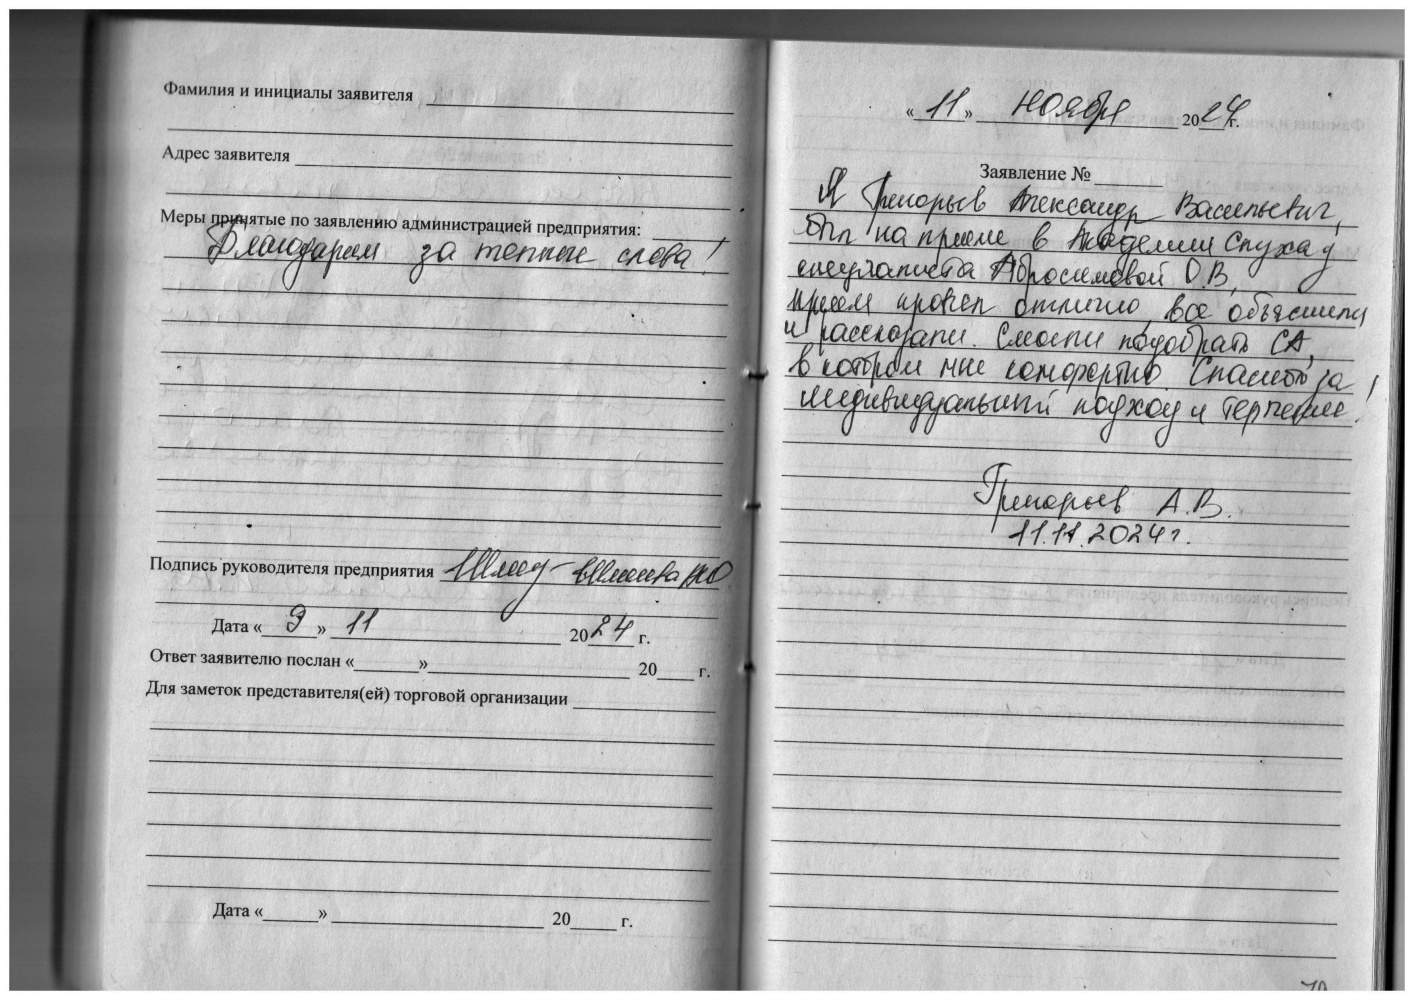 Фамилия и инициалы заявителя
Адрес заявителя
Меры принятые по заявлению администрацией предприятия:
Благодарим за теплые слова!
Подпись руководителя предприятия
Дата « 9 » 11 2024 г.
Ответ заявителю послан « » 20 г.
Для заметок представителя(ей) торговой организации
Дата « » 20 г.
« 11 » ноября 2024 г.
Заявление №
Я Григорьев Александр Васильевич,
был на приеме в Академии слуха у
специалиста Абросимовой О.В,
прием провел отлично, все объяснили
и рассказали. Смогли подобрать СА,
в котором мне комфортно. Спасибо за
индивидуальный подход и терпение!
Григорьев А.В.
11.11.2024г.